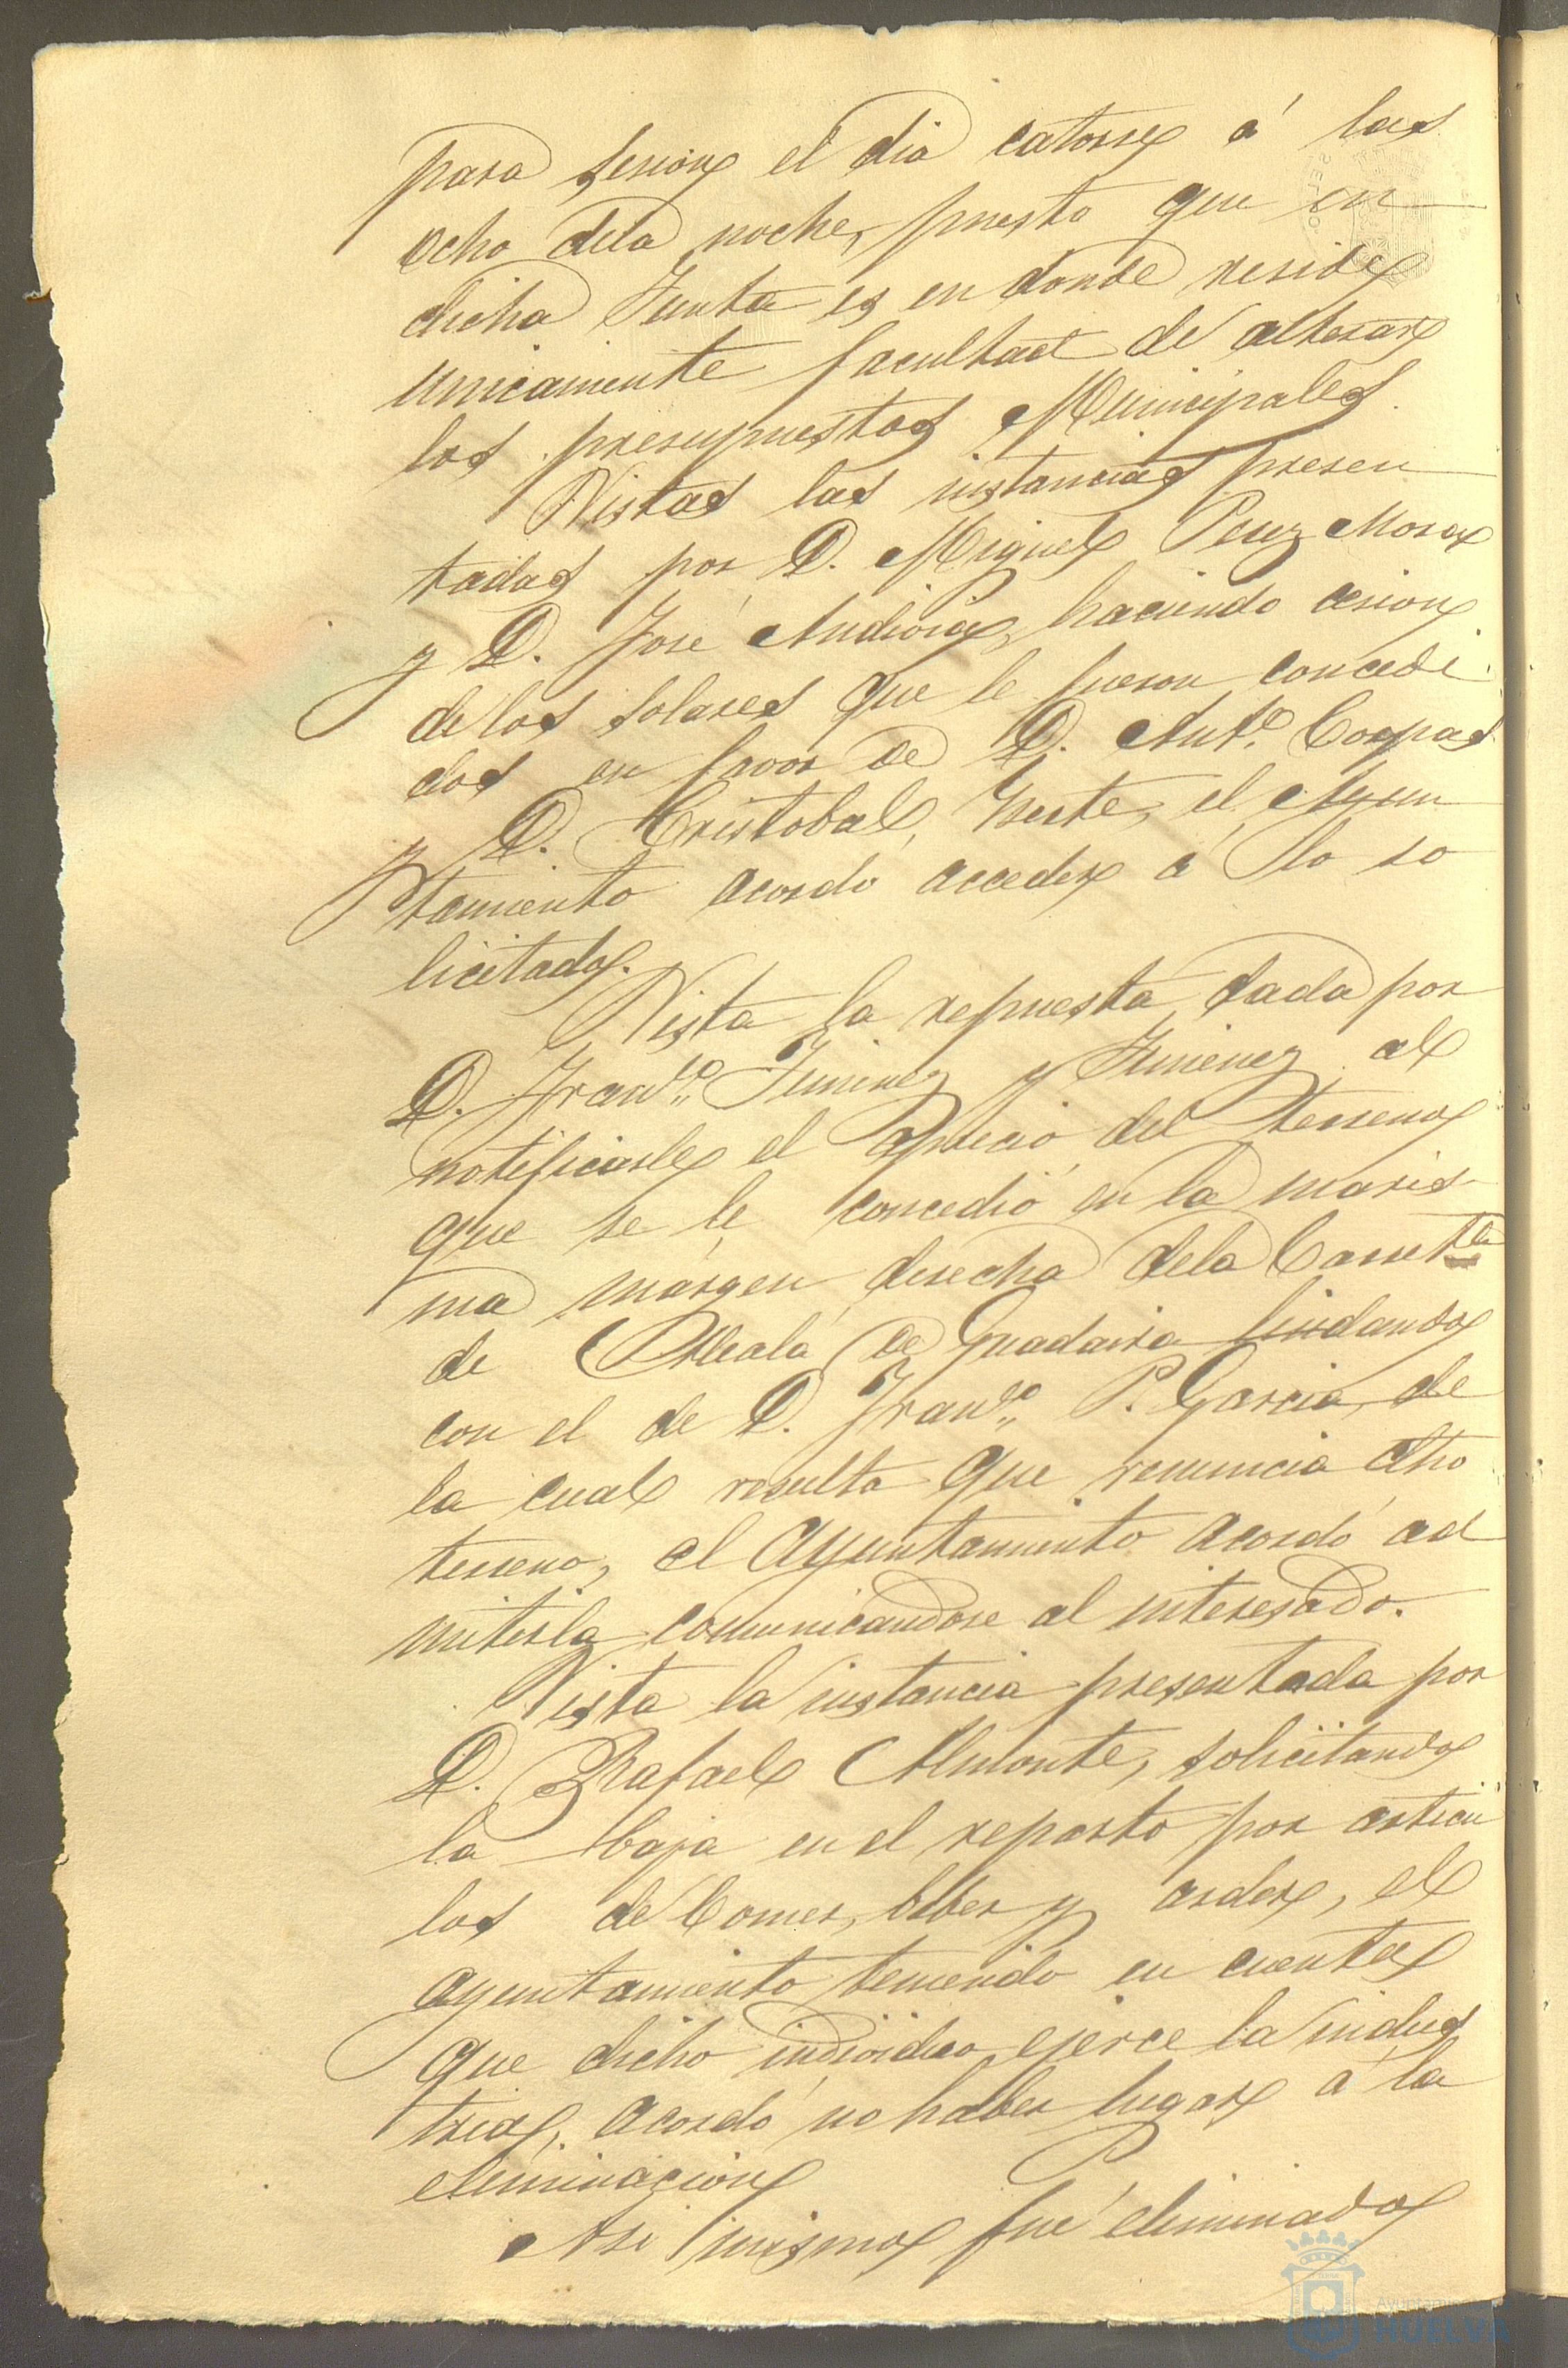 para sesion el dia catorse á las
ocho dela noche, puesto que en
dicha Junta es en donde reside
unicamente facultad de alterar
los presupuestos Municipales.
Vistas las instancias presen
tadas por D. Miguel Perez Mora
y D. José haciendo cesion
de los solares que le fueron concedi
dos en favor de D. Antº.
y D. Cristobal el Ayun
tamiento acordó acceder á lo so
licitado.
Vista la repuesta dada por
D. Franco. Jiminez y Jimenez al
notificarle el precio del terreno
que se le concedió en la maris
ma márgen derecha dela Carretª
de Alcalá de Guadaira lindando
con el de D. Franco. P. Garcia, de
la cual resulta que renuncia dho
terreno, el Ayuntamiento acordó ad
mitirla comunicandose al interesado.
Vista la instancia presentada por
D. Rafael Almonte, solicitando
la baja en el reparto por articu
los de Comer, beber y arder, el
ayuntamiento teniendo en cuenta
que dicho individuo ejerce la indus
tria, acordó no haber lugar á la
eliminacion
Asi mismo fué eliminado
Ayuntami
HUELVA